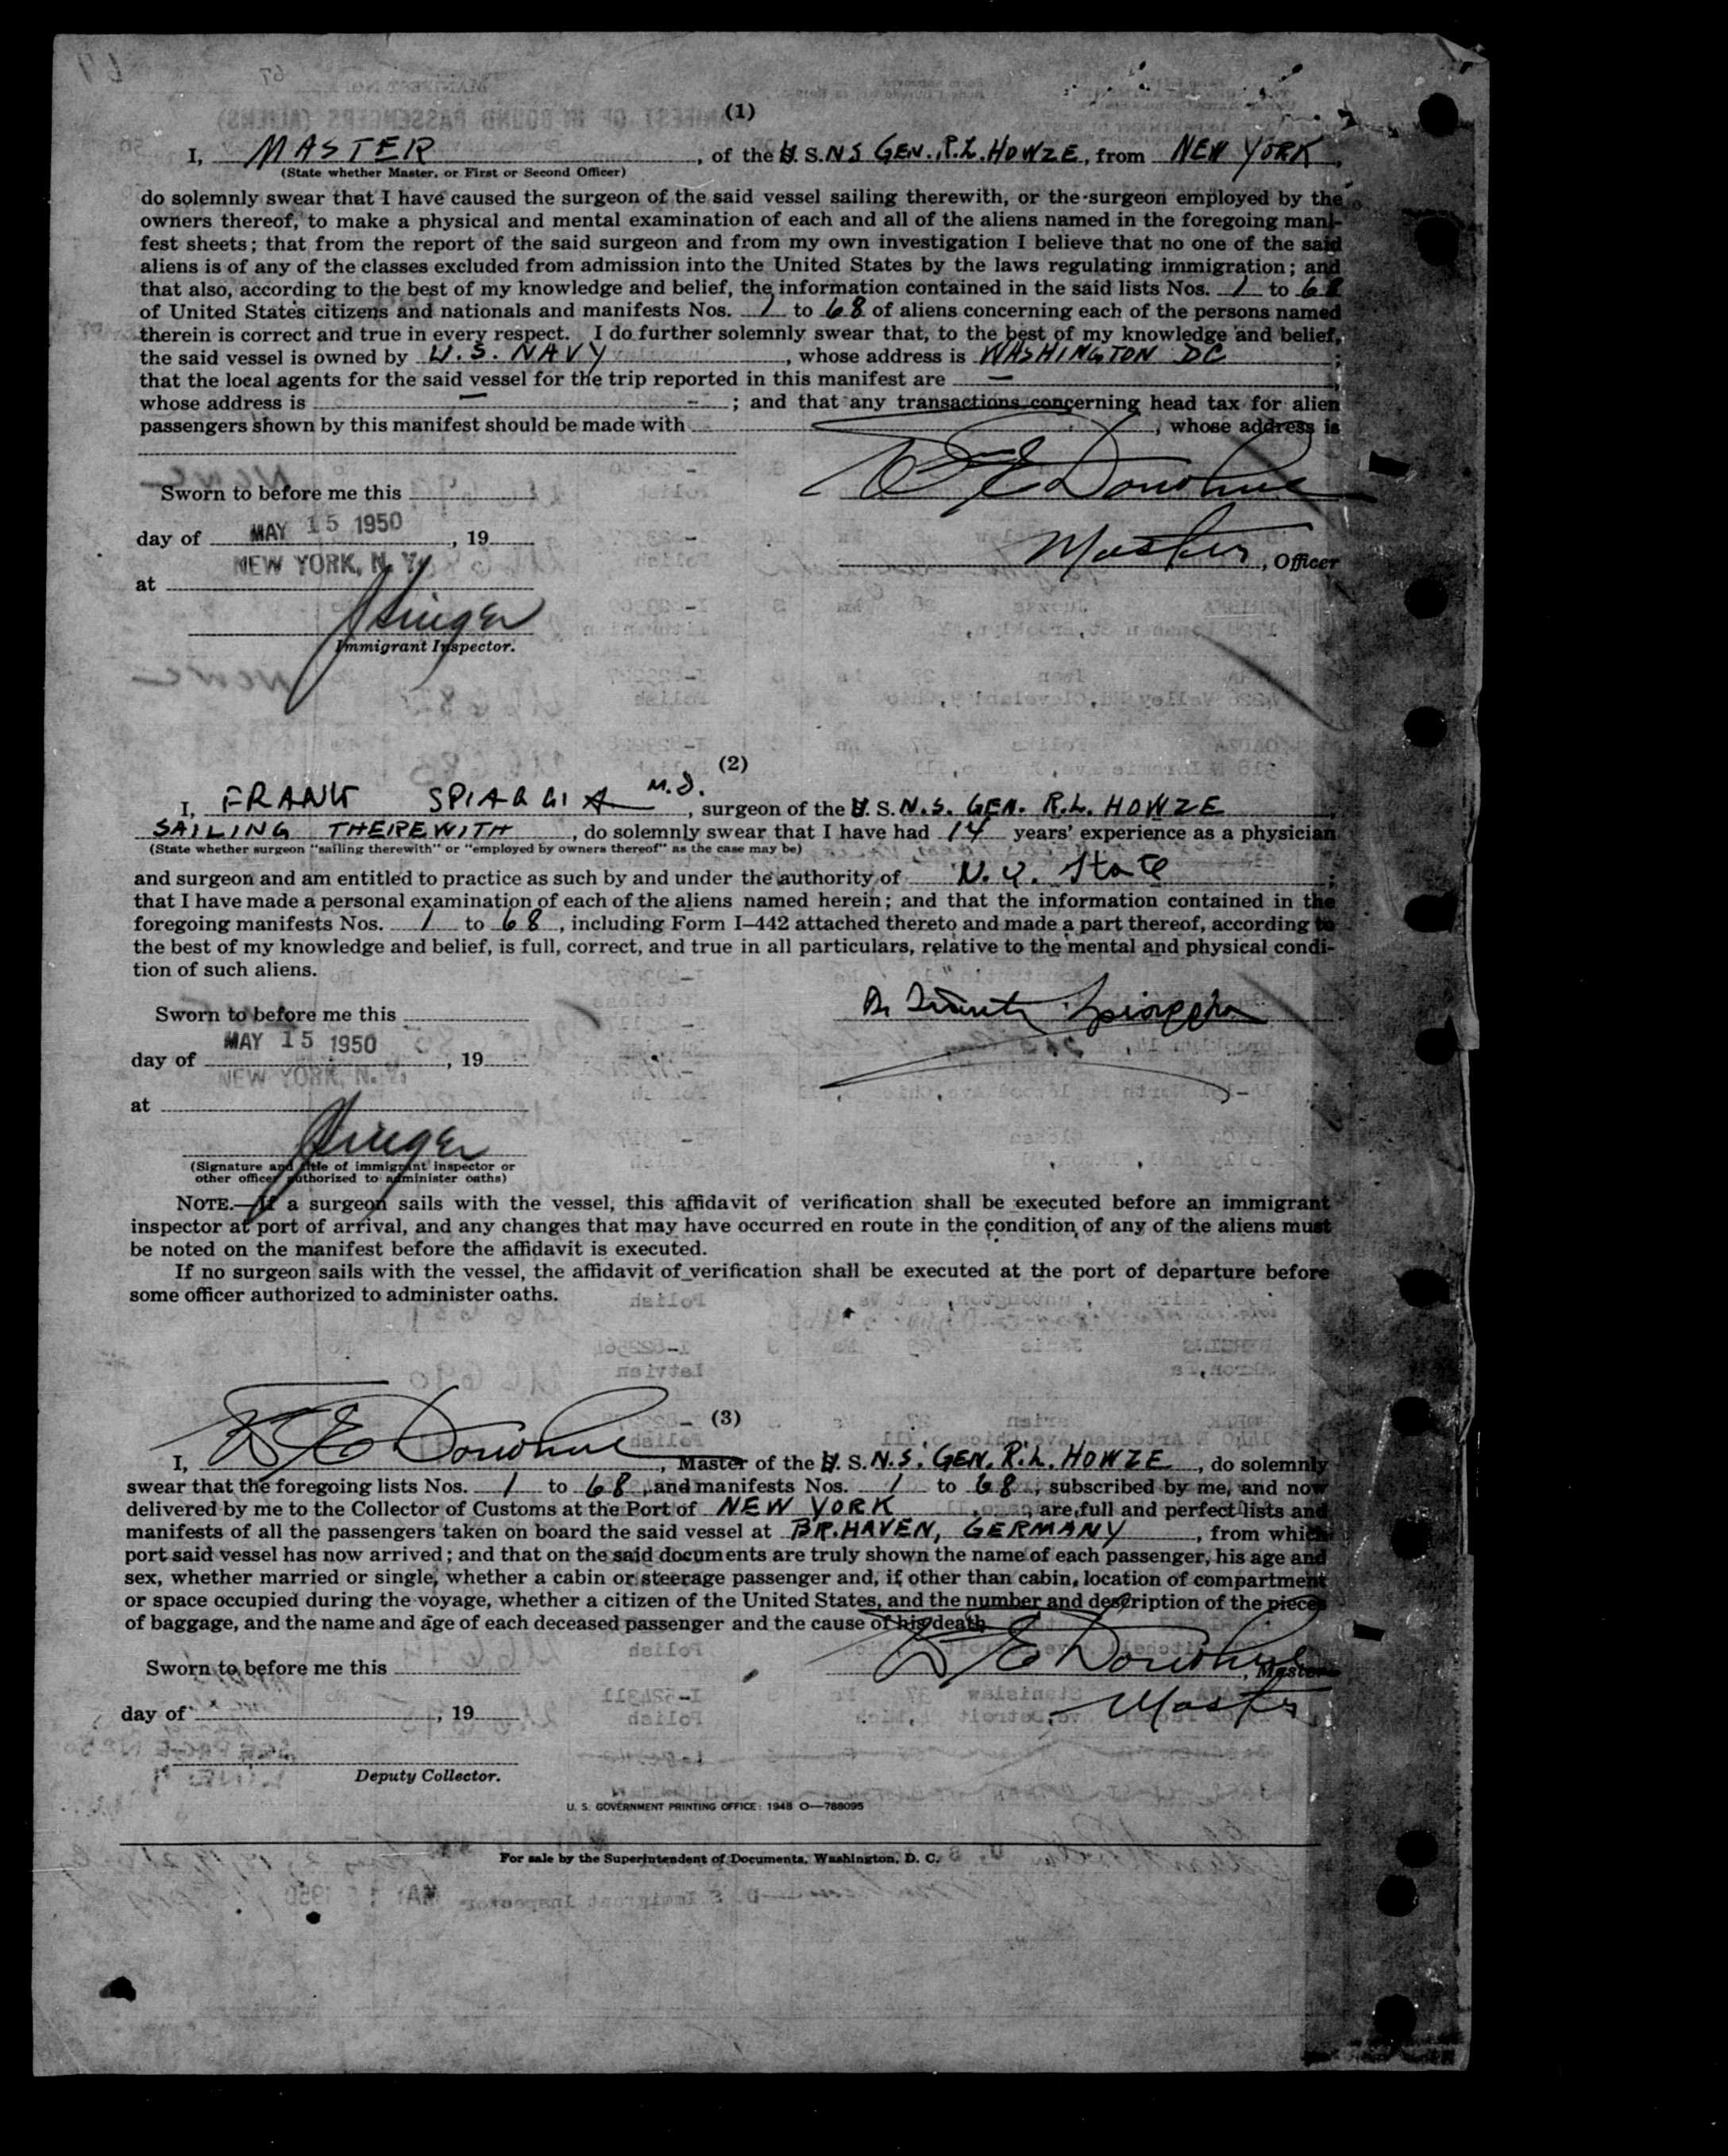 (1)
I, MASTER, of the U. S. N S GEN. R. L. HOWZE, from NEW YORK,
(State whether Master, or First or Second Officer)
do solemnly swear that I have caused the surgeon of the said vessel sailing therewith, or the surgeon employed by the
owners thereof, to make a physical and mental examination of each and all of the aliens named in the foregoing mani-
fest sheets; that from the report of the said surgeon and from my own investigation I believe that no one of the said
aliens is of any of the classes excluded from admission into the United States by the laws regulating immigration; and
that also, according to the best of my knowledge and belief, the information contained in the said lists Nos. 1 to 68
of United States citizens and nationals and manifests Nos. 1 to 68 of aliens concerning each of the persons named
therein is correct and true in every respect. I do further solemnly swear that, to the best of my knowledge and belief,
the said vessel is owned by U. S. NAVY, whose address is WASHINGTON DC;
that the local agents for the said vessel for the trip reported in this manifest are —,
whose address is —; and that any transactions concerning head tax for alien
passengers shown by this manifest should be made with, whose address is
Sworn to before me this
day of MAY 15 1950, 19
NEW YORK, N. Y.
at
Donohue
Master, Officer
Immigrant Inspector.
(2)
I, FRANK SPIAGGIA M.D., surgeon of the U. S. N. S. GEN. R. L. HOWZE
SAILING THEREWITH, do solemnly swear that I have had 14 years' experience as a physician
(State whether surgeon "sailing therewith" or "employed by owners thereof" as the case may be)
and surgeon and am entitled to practice as such by and under the authority of N. Y. State;
that I have made a personal examination of each of the aliens named herein; and that the information contained in the
foregoing manifests Nos. 1 to 68, including Form I-442 attached thereto and made a part thereof, according to
the best of my knowledge and belief, is full, correct, and true in all particulars, relative to the mental and physical condi-
tion of such aliens.
Sworn to before me this
day of MAY 15 1950, 19
NEW YORK, N. Y.
at
(Signature and title of immigrant inspector or
other officer authorized to administer oaths)
NOTE.—If a surgeon sails with the vessel, this affidavit of verification shall be executed before an immigrant
inspector at port of arrival, and any changes that may have occurred en route in the condition of any of the aliens must
be noted on the manifest before the affidavit is executed.
If no surgeon sails with the vessel, the affidavit of verification shall be executed at the port of departure before
some officer authorized to administer oaths.
(3)
I, Donohue, Master of the U. S. N. S. GEN. R. L. HOWZE, do solemnly
swear that the foregoing lists Nos. 1 to 68, and manifests Nos. 1 to 68, subscribed by me, and now
delivered by me to the Collector of Customs at the Port of NEW YORK, are full and perfect lists and
manifests of all the passengers taken on board the said vessel at BR. HAVEN, GERMANY, from which
port said vessel has now arrived; and that on the said documents are truly shown the name of each passenger, his age and
sex, whether married or single, whether a cabin or steerage passenger and, if other than cabin, location of compartment
or space occupied during the voyage, whether a citizen of the United States, and the number and description of the pieces
of baggage, and the name and age of each deceased passenger and the cause of his death.
Donohue, Master
Sworn to before me this
Master
day of, 19
Deputy Collector.
U. S. GOVERNMENT PRINTING OFFICE: 1948 O—788095
For sale by the Superintendent of Documents, Washington, D. C.